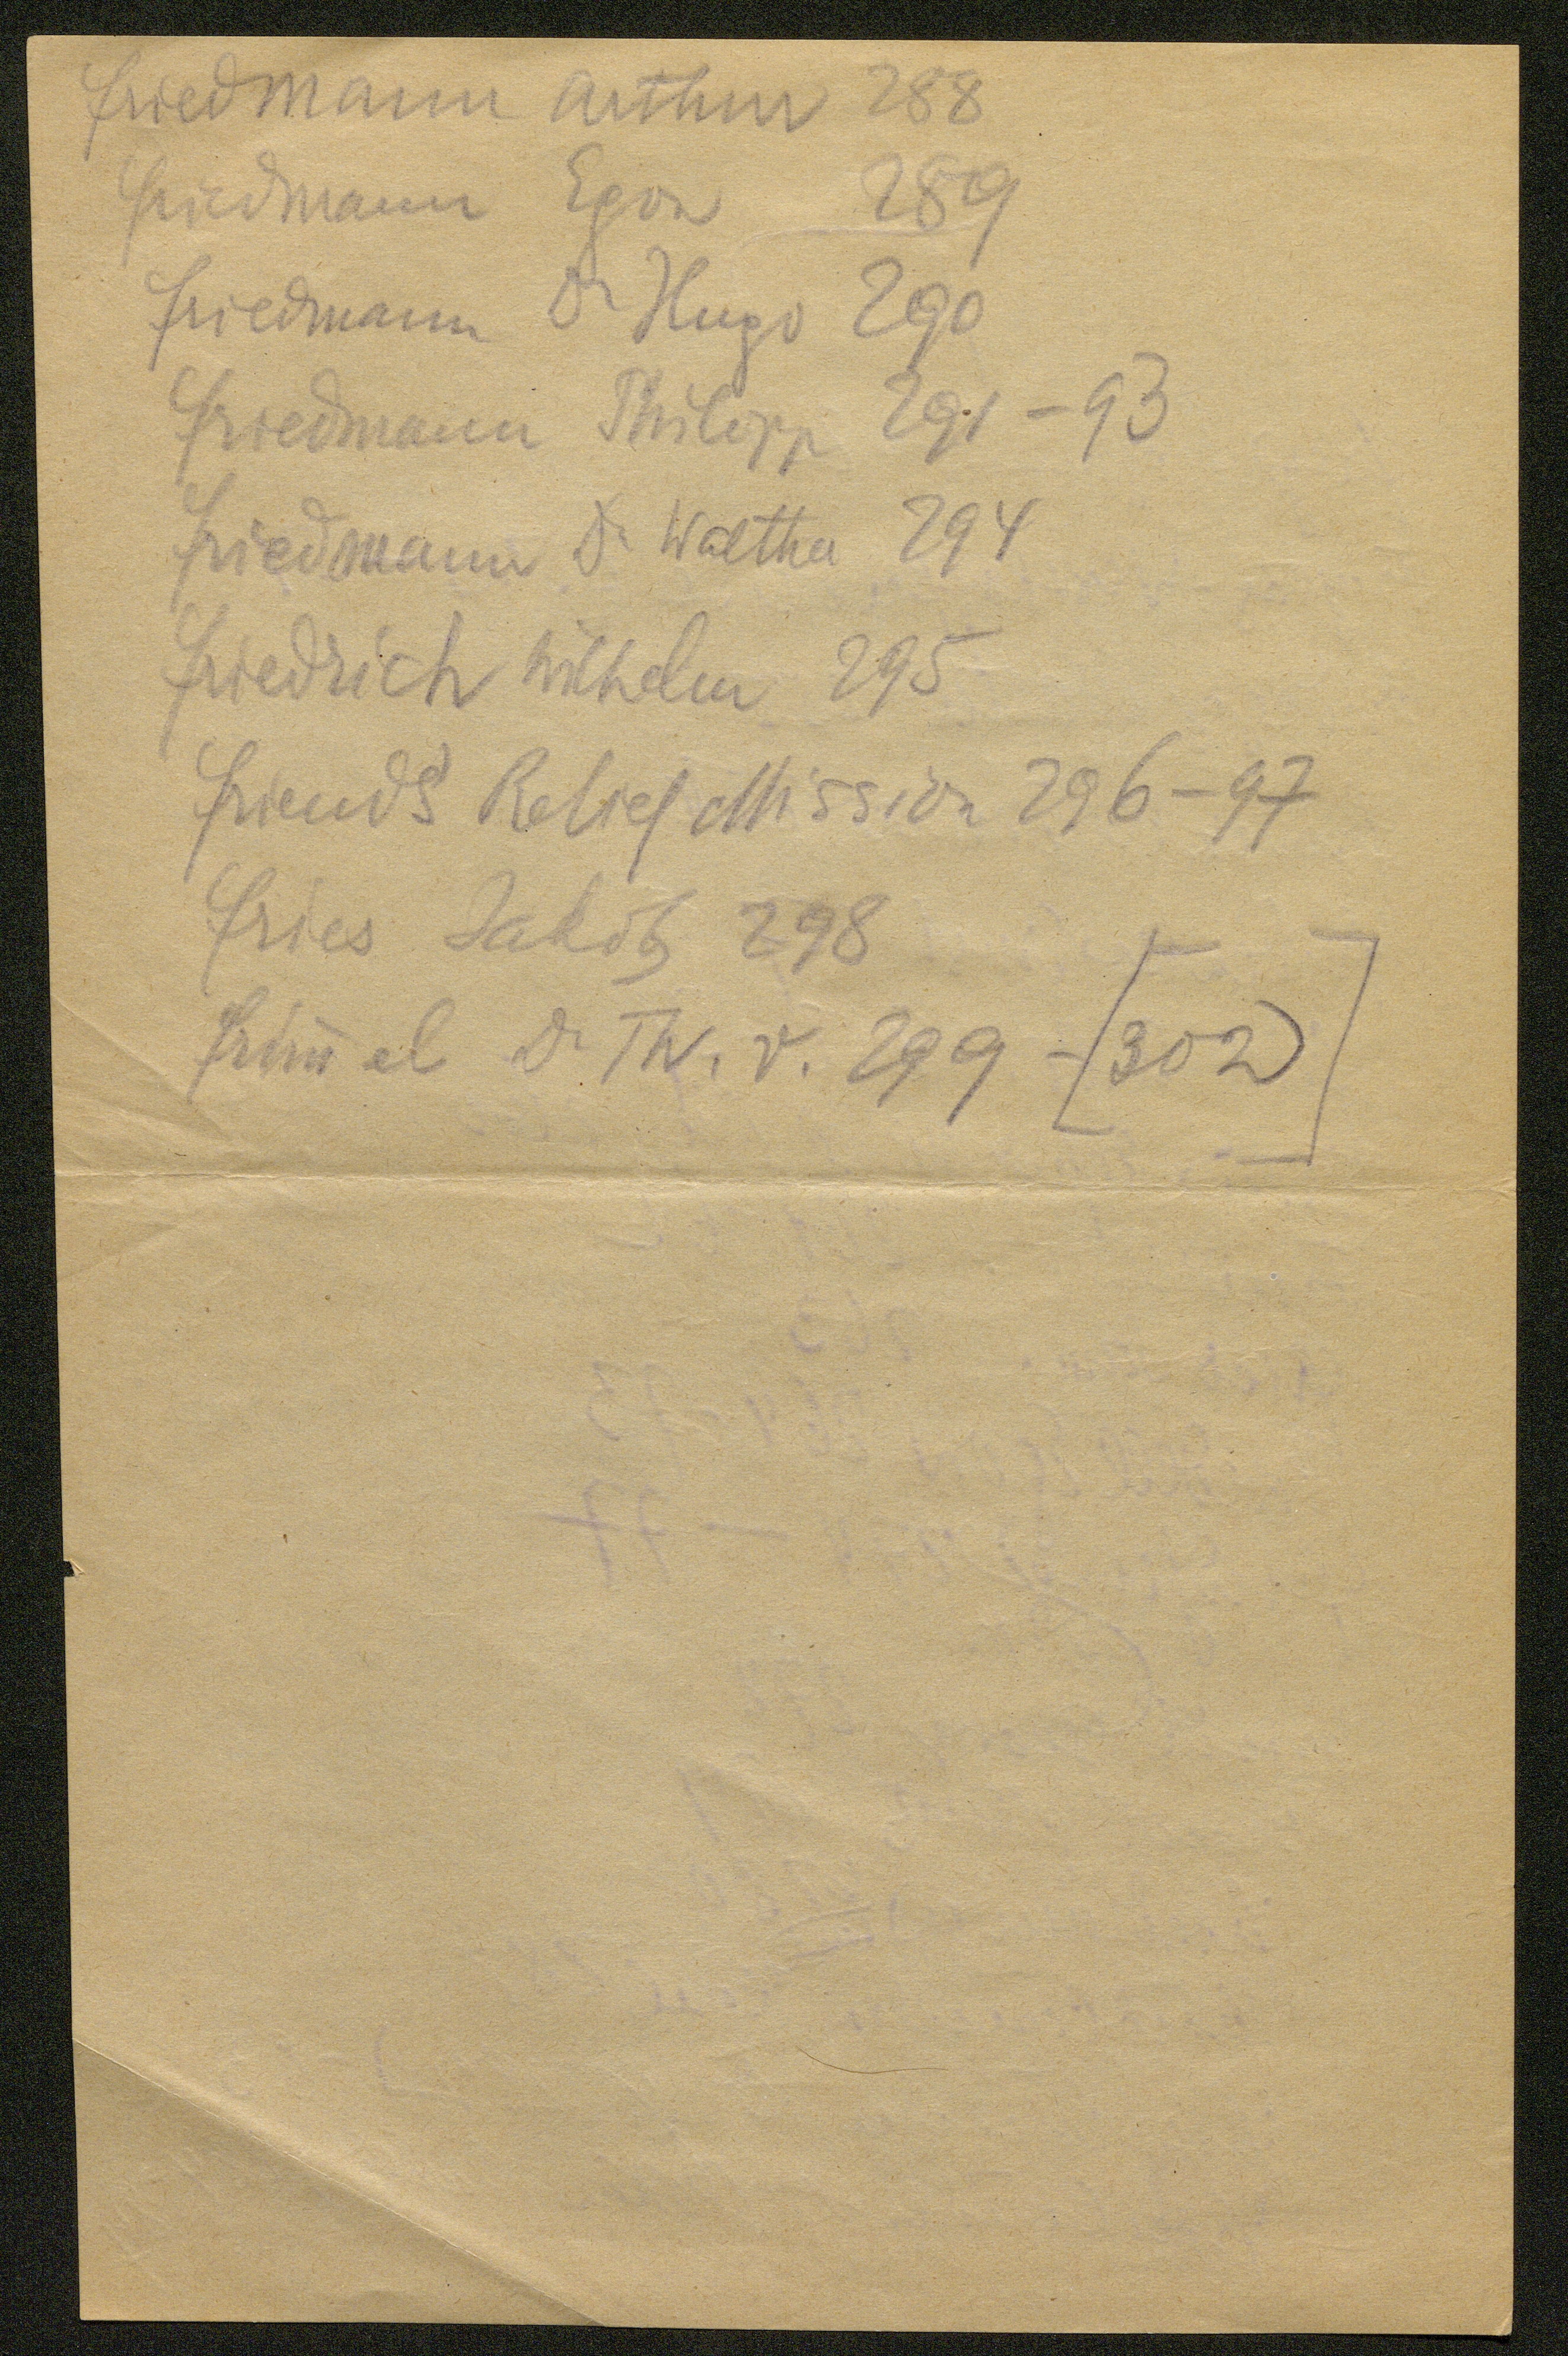 Friedmann Arthur 288
Friedmann Egon 289
Friedmann Dr Hugo 290
Friedmann Philipp 291-93
Friedmann Dr Walther 294
Friedrich Wilhelm 295
Friends Relief Mission 296-97
Fries Jakob 298
Frim̅el Dr Th. v. 299 - [302]